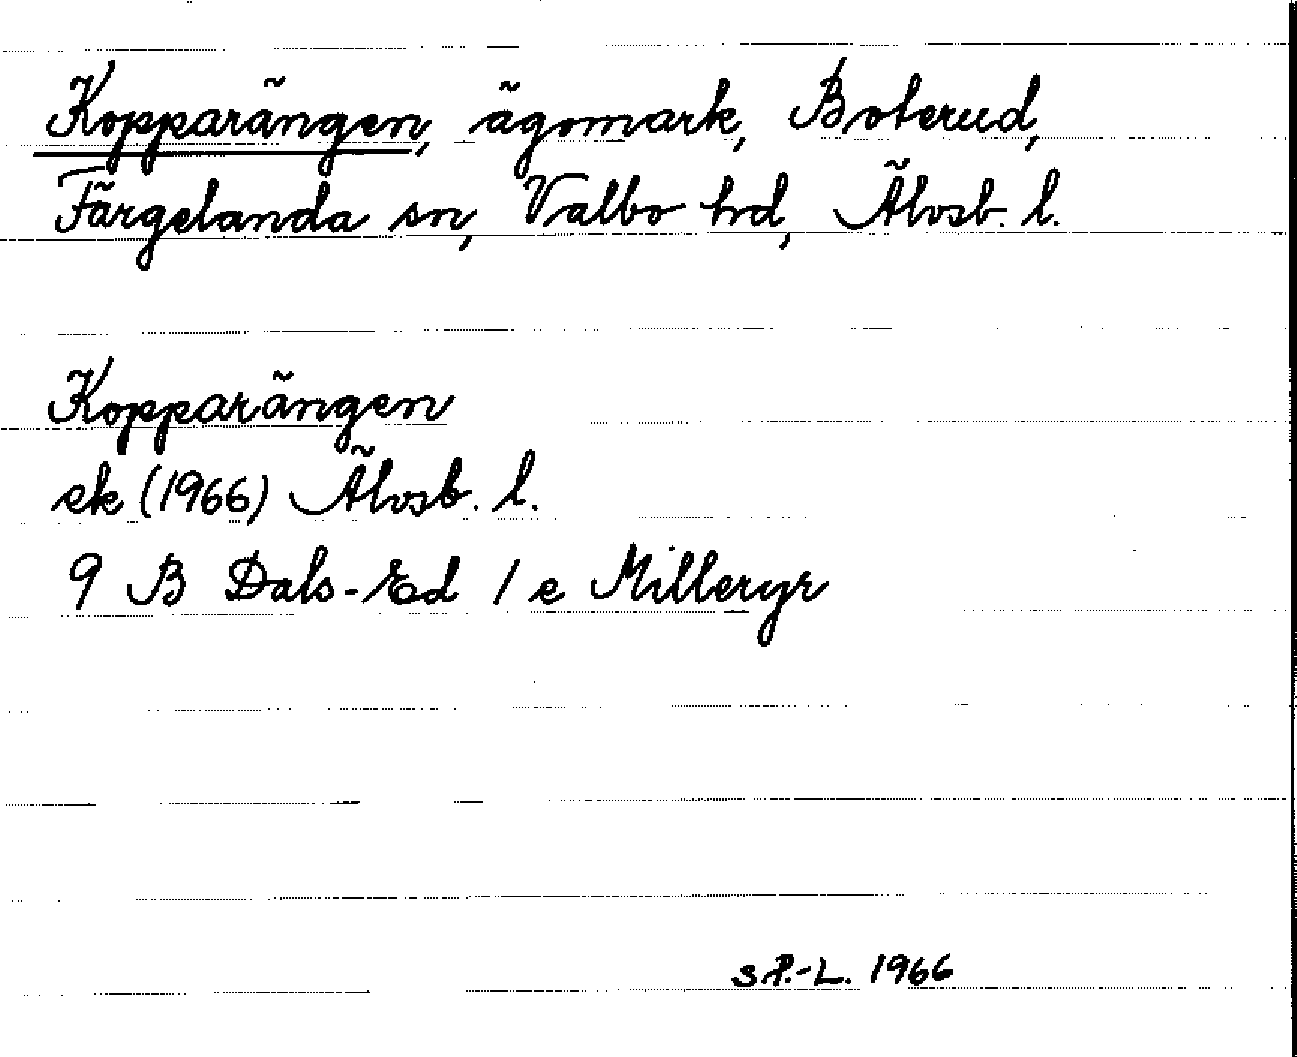 Kopparängen, ägomark, Boterud,
Färgelanda sn, Valbo hd, Älvsb. l.
Kopparängen
ek (1966) Älvsb. l.
9 B Dals-Ed 1 e Milleryr
S.P.-L. 1966